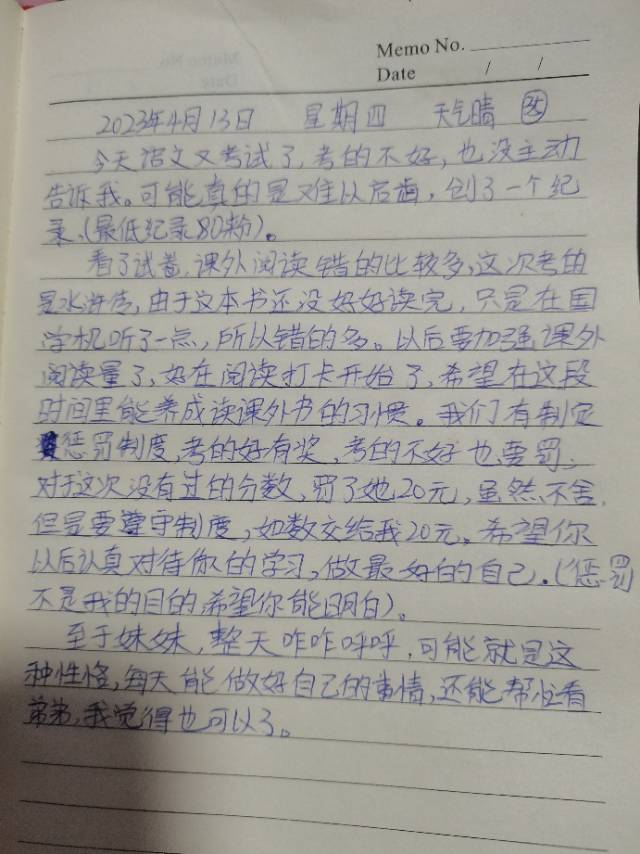 Memo No.
Date / /
2023年4月13日 星期四 天气晴 35
今天语文又考试了,考的不好,也没主动
告诉我。可能真的是难以启齿,创了一个纪
录(最低纪录80称)。
看了试卷,课外阅读错的比较多,这次考的
是水浒传,由于这本书还没好好读完,只是在国
学机听了一点,所以错的多。以后要加强课外
阅读量了,好在阅读打卡开始了,希望在这段
时间里能养成读课外书的习惯。我们有制定
惩罚制度,考的好有奖,考的不好也要罚,
对于这次没有过的分数,罚了她20元,虽然不舍,
但是要遵守制度,如数交给我20元。希望你
以后认真对待你的学习,做最好的自己.(惩罚
不是我的目的希望你能明白)。
至于妹妹,整天咋咋呼呼,可能就是这
种性格,每天能做好自己的事情,还能帮忙看
弟弟,我觉得也可以了。